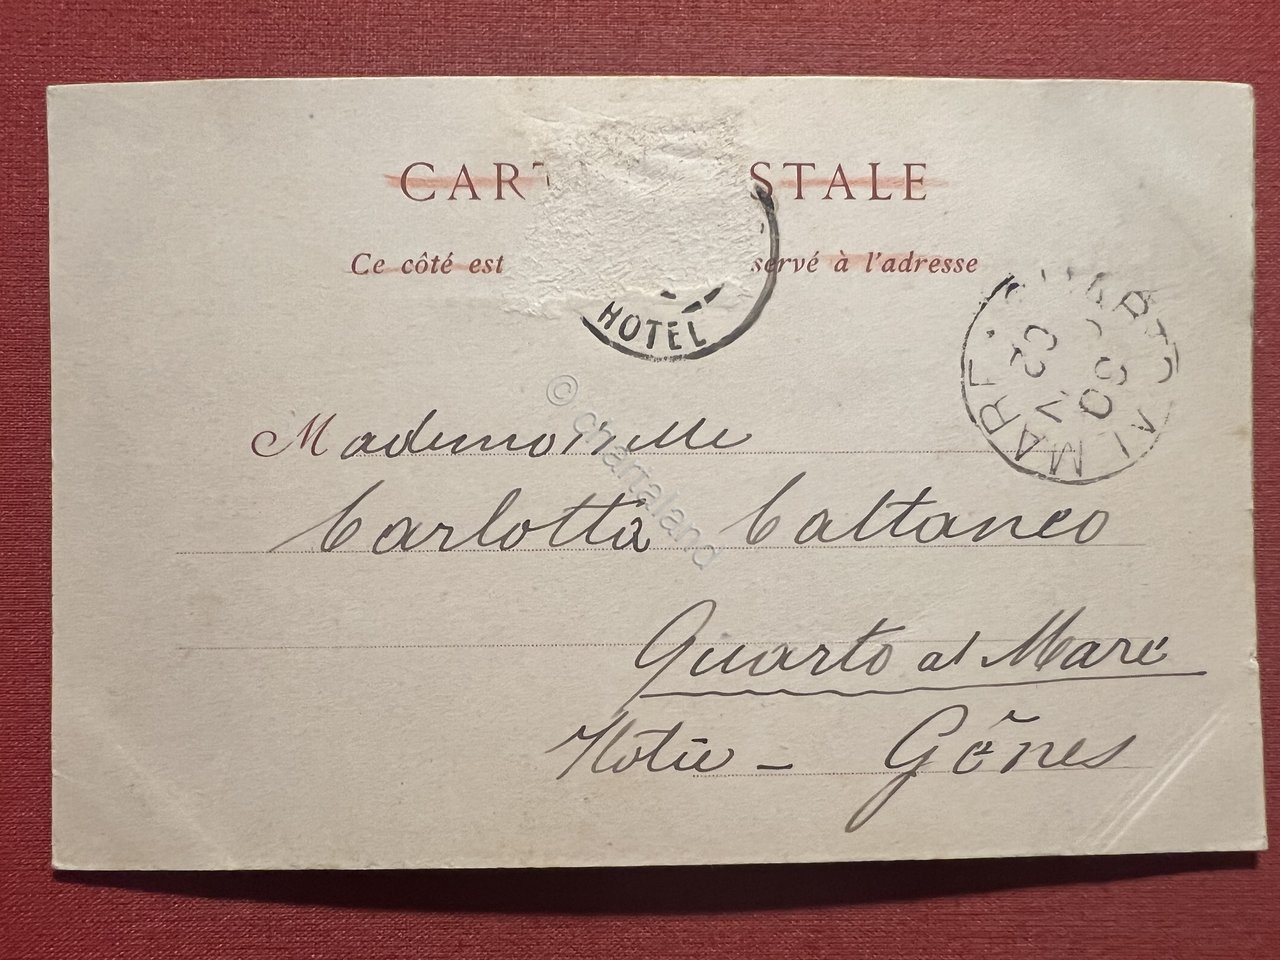 CART STALE
Ce côté est servé à l'adresse
HOTEL
QUARTO AL MARE
02
© chartaland
Mademoiselle
Carlotta Cattaneo
Quarto al Mare
Gênes